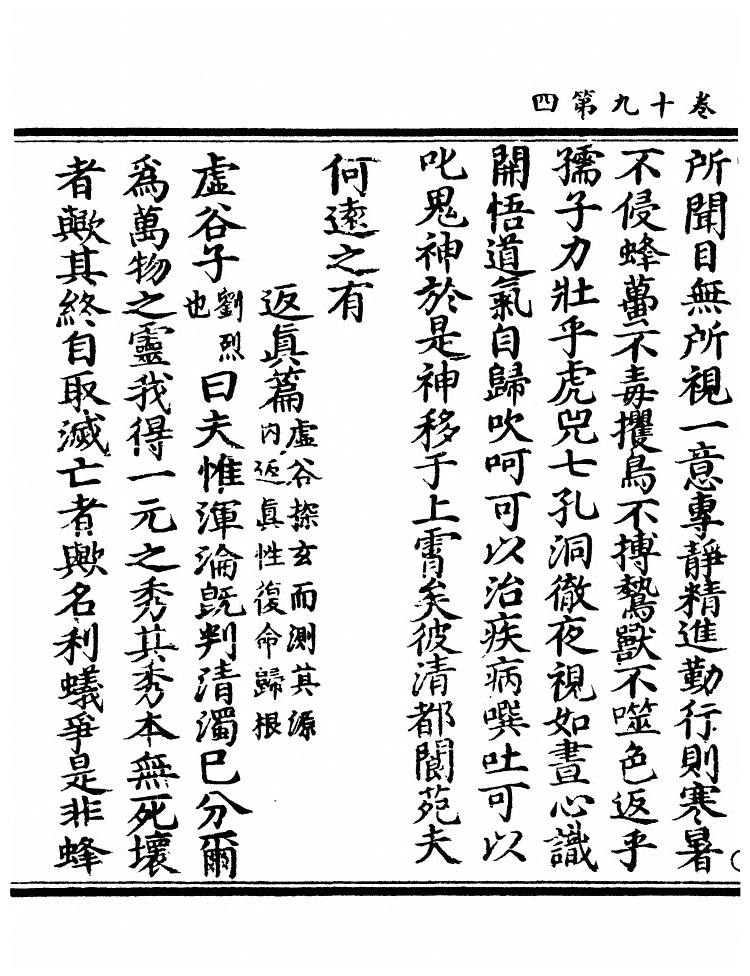 卷十九第四
所聞目無所視一意專靜精進勤行則寒暑
不侵蜂蠆不毒攫鳥不搏鷙獸不噬色返乎
孺子力壯乎虎兕七孔洞徹夜視如晝心識
開悟道氣自歸吹呵可以治疾病噀吐可以
叱鬼神於是神移于上霄矣彼清都閬苑夫
何遠之有
返眞篇虛谷探玄而測其源
内返眞性復命歸根
虛谷子劉烈
也曰夫惟渾淪旣判清濁已分爾
爲萬物之靈我得一元之秀其秀本無死壞
者歟其終自取滅亡者歟名利蟻爭是非蜂